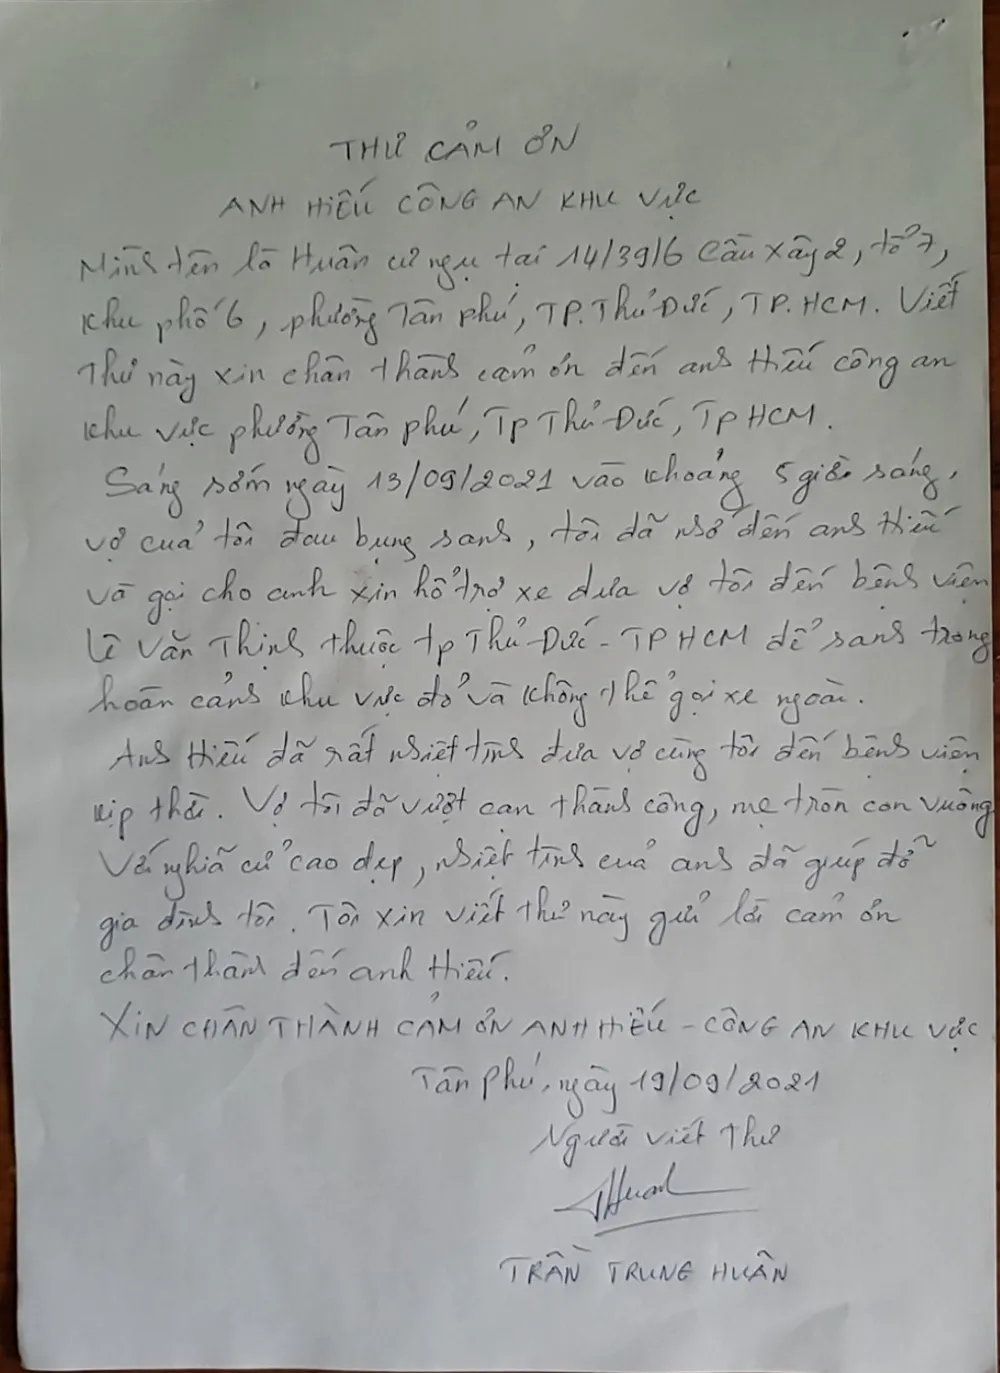 THƯ CẢM ƠN
ANH HIẾU CÔNG AN KHU VỰC
Mình tên là Huân cư ngụ tại 14/39/6 Cầu Xây 2, tổ 7,
khu phố 6, phường Tân Phú, TP. Thủ Đức, TP. HCM. Viết
Thư này xin chân thành cảm ơn đến anh Hiếu công an
khu vực phường Tân phú, Tp Thủ Đức, Tp HCM.
Sáng sớm ngày 13/09/2021 vào khoảng 5 giờ sáng,
vợ của tôi đau bụng sanh, tôi đã nhớ đến anh Hiếu
và gọi cho anh xin hổ trợ xe đưa vợ tôi đến bệnh viện
Lê Văn Thịnh thuộc tp Thủ Đức - TP HCM để sanh trong
hoàn cảnh khu vực đỏ và không thể gọi xe ngoài.
Anh Hiếu đã rất nhiệt tình đưa vợ cùng tôi đến bệnh viện
kịp thời. Vợ tôi đã vượt cạn thành công, mẹ tròn con vuông
Với nghĩa cử cao đẹp, nhiệt tình của anh đã giúp đỡ
gia đình tôi. Tôi xin viết thư này gửi lời cảm ơn
chân thành đến anh Hiếu.
XIN CHÂN THÀNH CẢM ƠN ANH HIẾU - CÔNG AN KHU VỰC
Tân Phú, ngày 19/09/2021
Người viết Thư
Huân
TRẦN TRUNG HUÂN